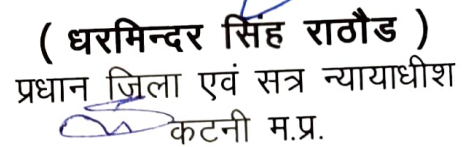 ( धरमिन्दर सिंह राठौड )
प्रधान जिला एवं सत्र न्यायाधीश
कटनी म.प्र.